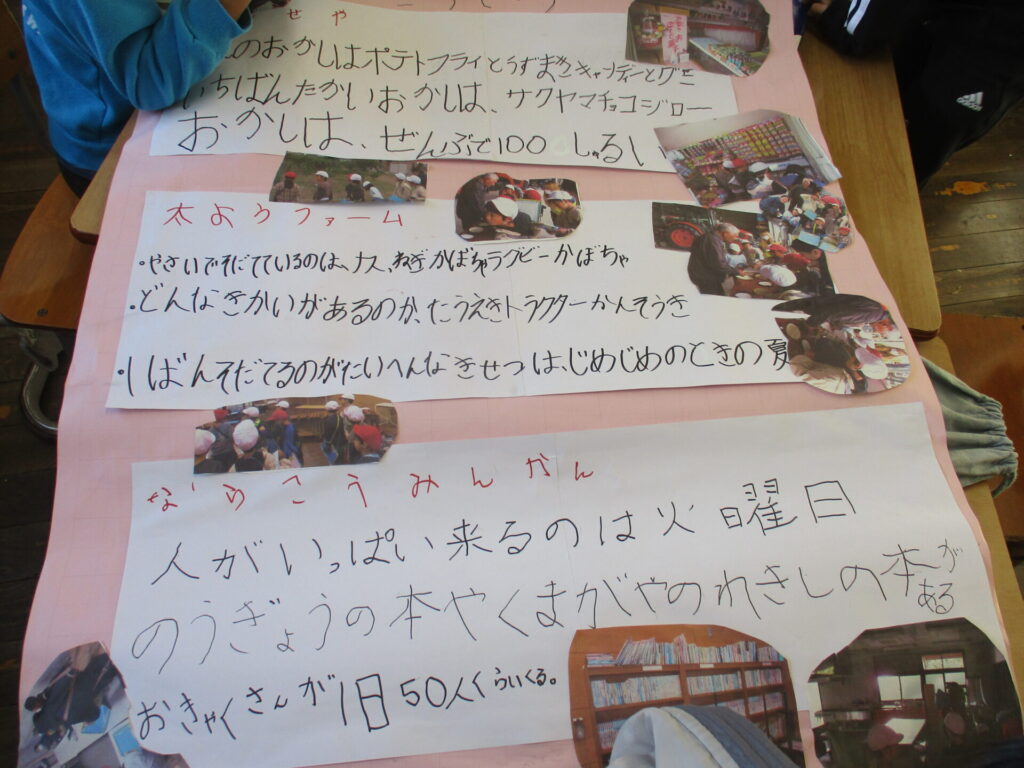 せや
のおかしはポテトフライとうずまきキャンディーとグミ
いちばんたかいおかしは、サクヤマチョコジロー
おかしは、ぜんぶで100しゅるい
太ようファーム
・やさいでそだてているのは、ナス、ねぎかぼちゃラグビーかぼちゃ
・どんなきかいがあるのか、たうえきトラクターかんそうき
・1ばんそだてるのがたいへんなきせつは、じめじめのときの夏
ならこうみんかん
人がいっぱい来るのは火曜日
のうぎょうの本やくまがやのれきしの本がある
おきゃくさんが1日50人くらいくる。
adidas